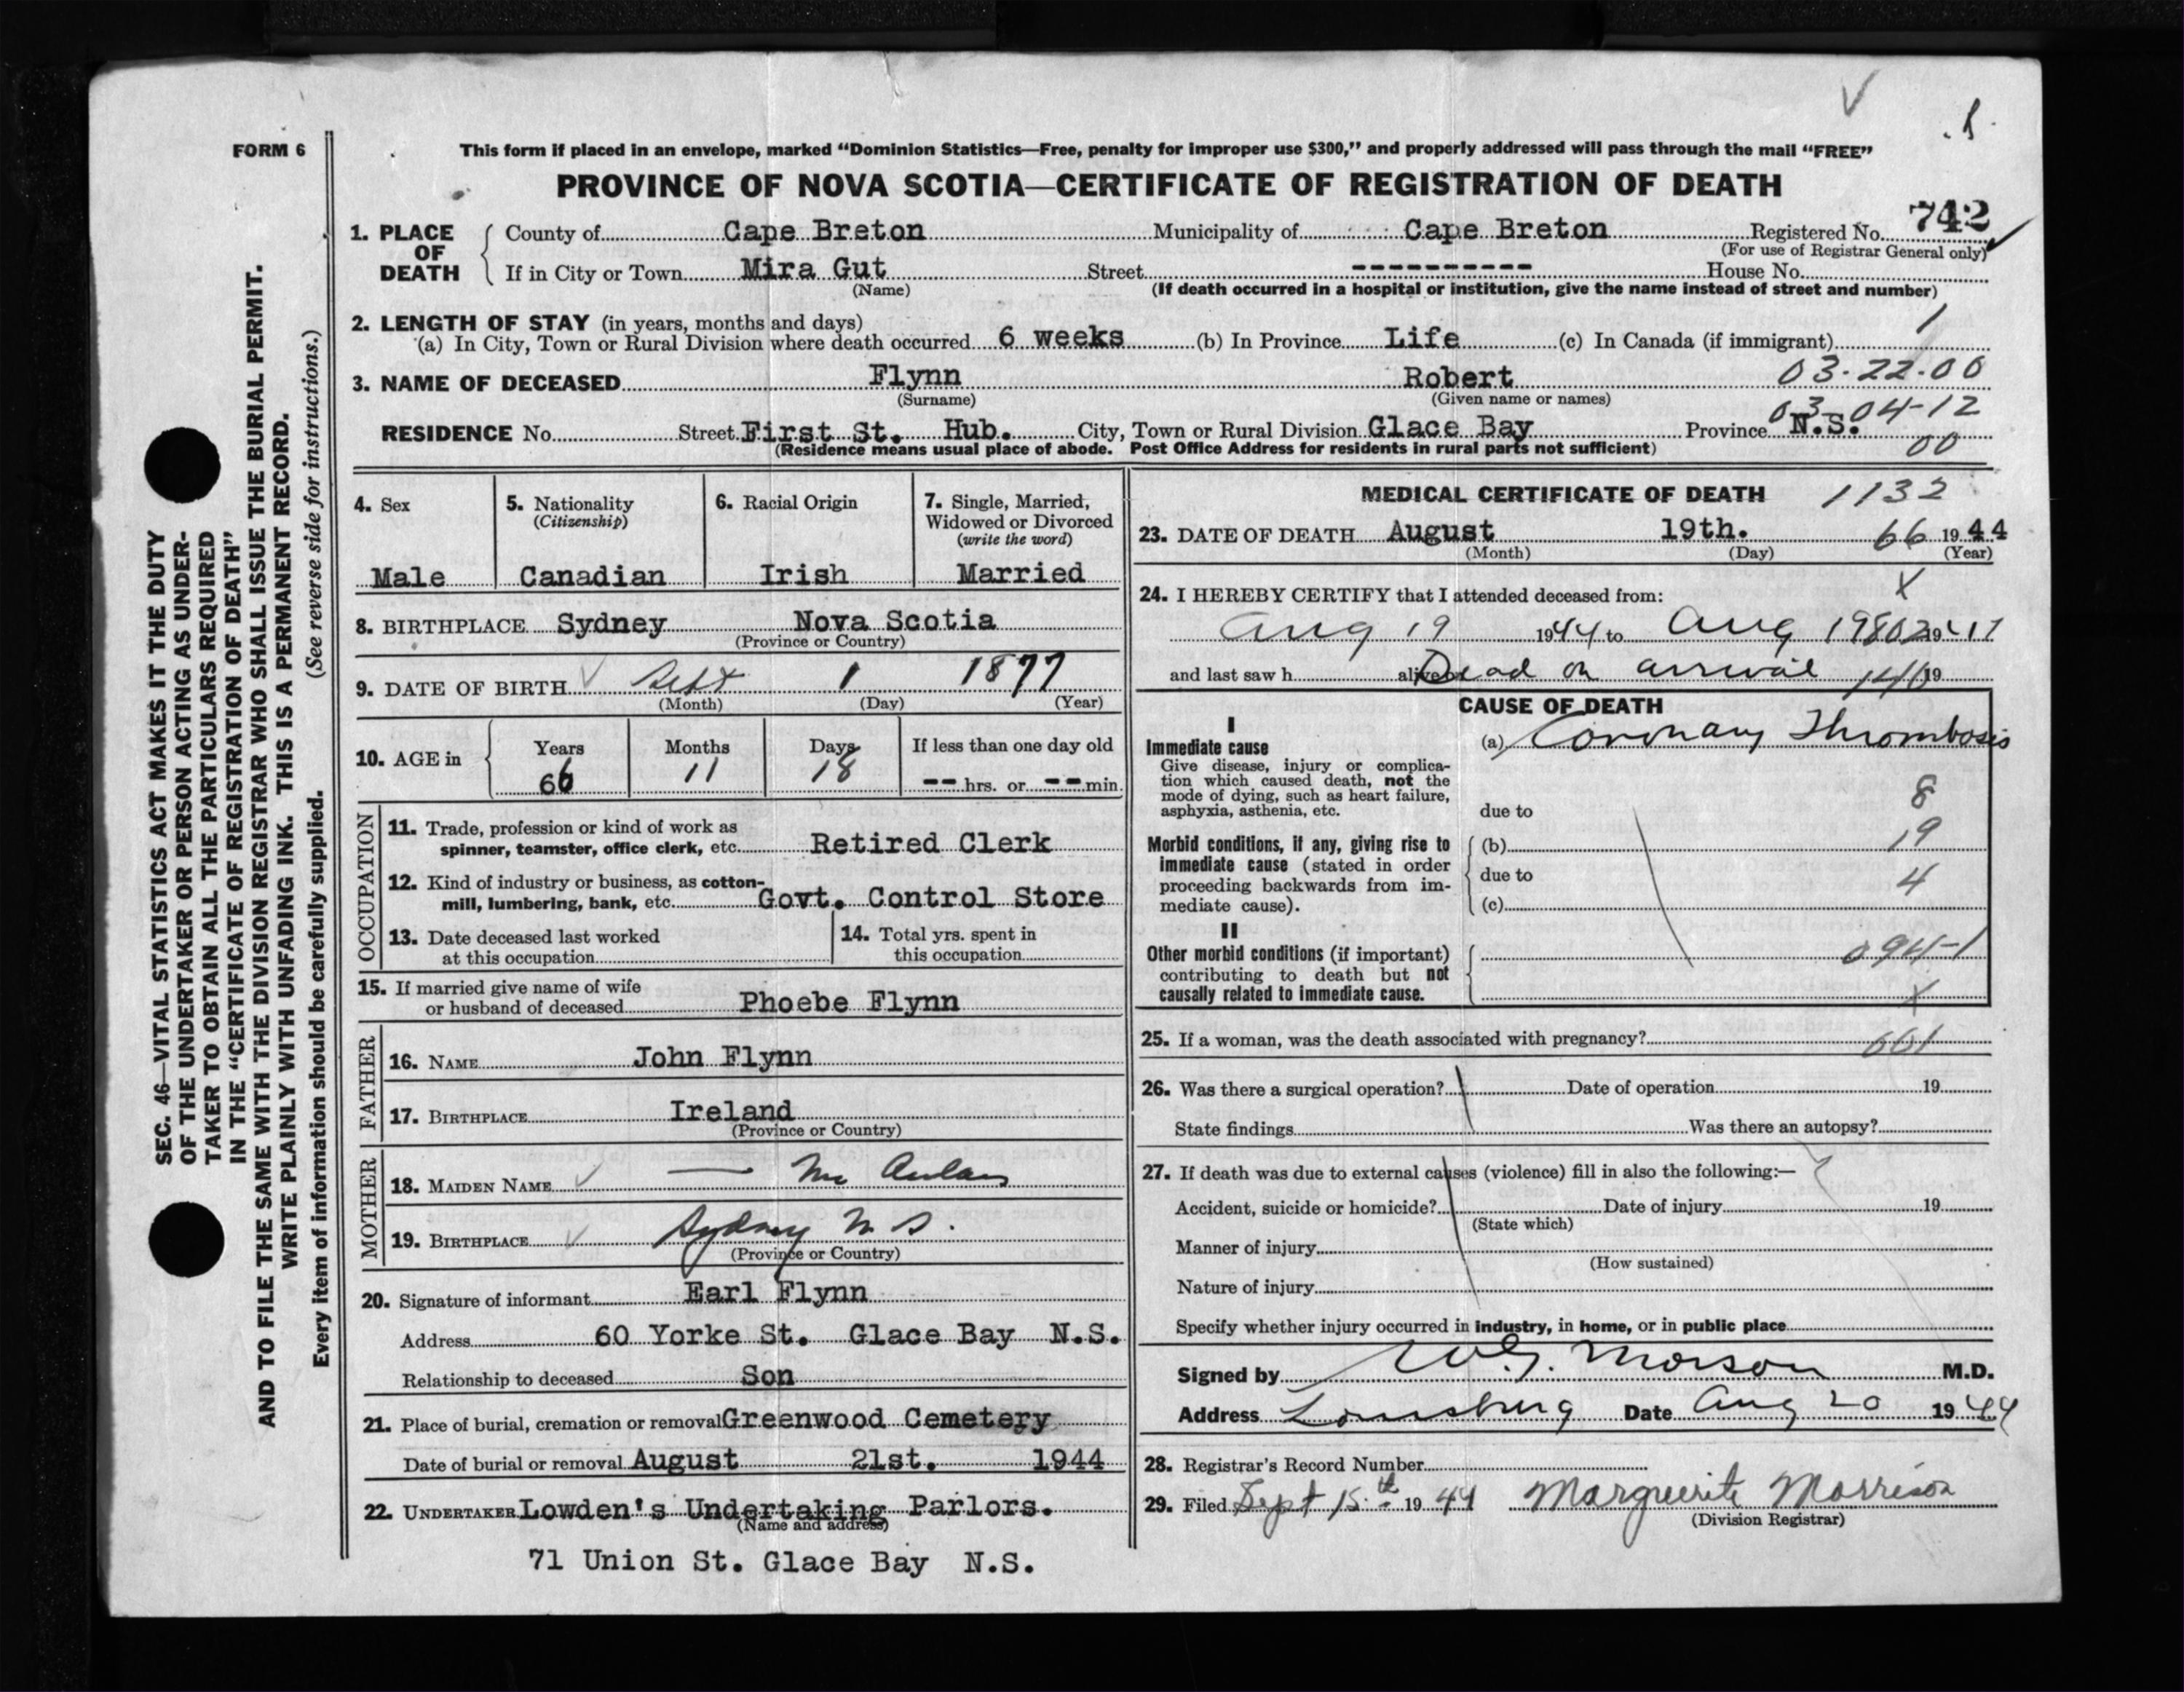 FORM 6
This form if placed in an envelope, marked "Dominion Statistics—Free, penalty for improper use $300," and properly addressed will pass through the mail "FREE"
PROVINCE OF NOVA SCOTIA—CERTIFICATE OF REGISTRATION OF DEATH
SEC. 46—VITAL STATISTICS ACT MAKES IT THE DUTY
OF THE UNDERTAKER OR PERSON ACTING AS UNDER-
TAKER TO OBTAIN ALL THE PARTICULARS REQUIRED
IN THE "CERTIFICATE OF REGISTRATION OF DEATH"
AND TO FILE THE SAME WITH THE DIVISION REGISTRAR WHO SHALL ISSUE THE BURIAL PERMIT.
WRITE PLAINLY WITH UNFADING INK. THIS IS A PERMANENT RECORD.
Every item of information should be carefully supplied. (See reverse side for instructions.)
1. PLACE OF DEATH
County of Cape Breton Municipality of Cape Breton Registered No. 742
(For use of Registrar General only)
If in City or Town Mira Gut Street ---------- House No.
(Name) (If death occurred in a hospital or institution, give the name instead of street and number)
2. LENGTH OF STAY (in years, months and days)
(a) In City, Town or Rural Division where death occurred 6 weeks (b) In Province Life (c) In Canada (if immigrant) 1
03-22-00
3. NAME OF DECEASED Flynn Robert
(Surname) (Given name or names)
03-04-12
RESIDENCE No. Street First St. Hub. City, Town or Rural Division Glace Bay Province N.S.
(Residence means usual place of abode. Post Office Address for residents in rural parts not sufficient) 00
4. Sex Male
5. Nationality (Citizenship) Canadian
6. Racial Origin Irish
7. Single, Married, Widowed or Divorced (write the word) Married
8. BIRTHPLACE Sydney Nova Scotia
(Province or Country)
9. DATE OF BIRTH Sept 1 1877
(Month) (Day) (Year)
10. AGE in Years 66 Months 11 Days 18 If less than one day old -- hrs. or -- min.
OCCUPATION
11. Trade, profession or kind of work as
spinner, teamster, office clerk, etc. Retired Clerk
12. Kind of industry or business, as cotton-
mill, lumbering, bank, etc. Govt. Control Store
13. Date deceased last worked
at this occupation
14. Total yrs. spent in
this occupation
15. If married give name of wife
or husband of deceased Phoebe Flynn
FATHER
16. NAME John Flynn
17. BIRTHPLACE Ireland
(Province or Country)
MOTHER
18. MAIDEN NAME — Mc
19. BIRTHPLACE Sydney N S.
(Province or Country)
20. Signature of informant Earl Flynn
Address 60 Yorke St. Glace Bay N.S.
Relationship to deceased Son
21. Place of burial, cremation or removal Greenwood Cemetery
Date of burial or removal August 21st. 1944
22. UNDERTAKER Lowden's Undertaking Parlors.
(Name and address)
71 Union St. Glace Bay N.S.
MEDICAL CERTIFICATE OF DEATH 1132
23. DATE OF DEATH August 19th. 66 1944
(Month) (Day) (Year)
24. I HEREBY CERTIFY that I attended deceased from: X
Aug 19 1944 to Aug 19
and last saw h alive on Dead on arrival 19
CAUSE OF DEATH
I
Immediate cause
Give disease, injury or complica-
tion which caused death, not the
mode of dying, such as heart failure,
asphyxia, asthenia, etc.
(a) Coronary Thrombosis
8
due to
Morbid conditions, if any, giving rise to
immediate cause (stated in order
proceeding backwards from im-
mediate cause).
(b) 19
due to 4
(c)
II
Other morbid conditions (if important)
contributing to death but not
causally related to immediate cause.
094-1
X
25. If a woman, was the death associated with pregnancy? 601
26. Was there a surgical operation? Date of operation 19
State findings Was there an autopsy?
27. If death was due to external causes (violence) fill in also the following:—
Accident, suicide or homicide? Date of injury 19
(State which)
Manner of injury
(How sustained)
Nature of injury
Specify whether injury occurred in industry, in home, or in public place
Signed by W.G. Morson M.D.
Address Louisburg Date Aug 20 1944
28. Registrar's Record Number
29. Filed Sept 15th 1944 Marguerite Morrison
(Division Registrar)